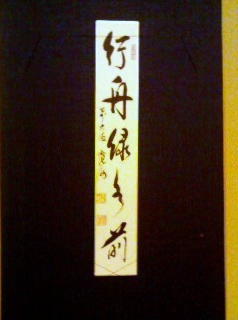 行舟緑水前